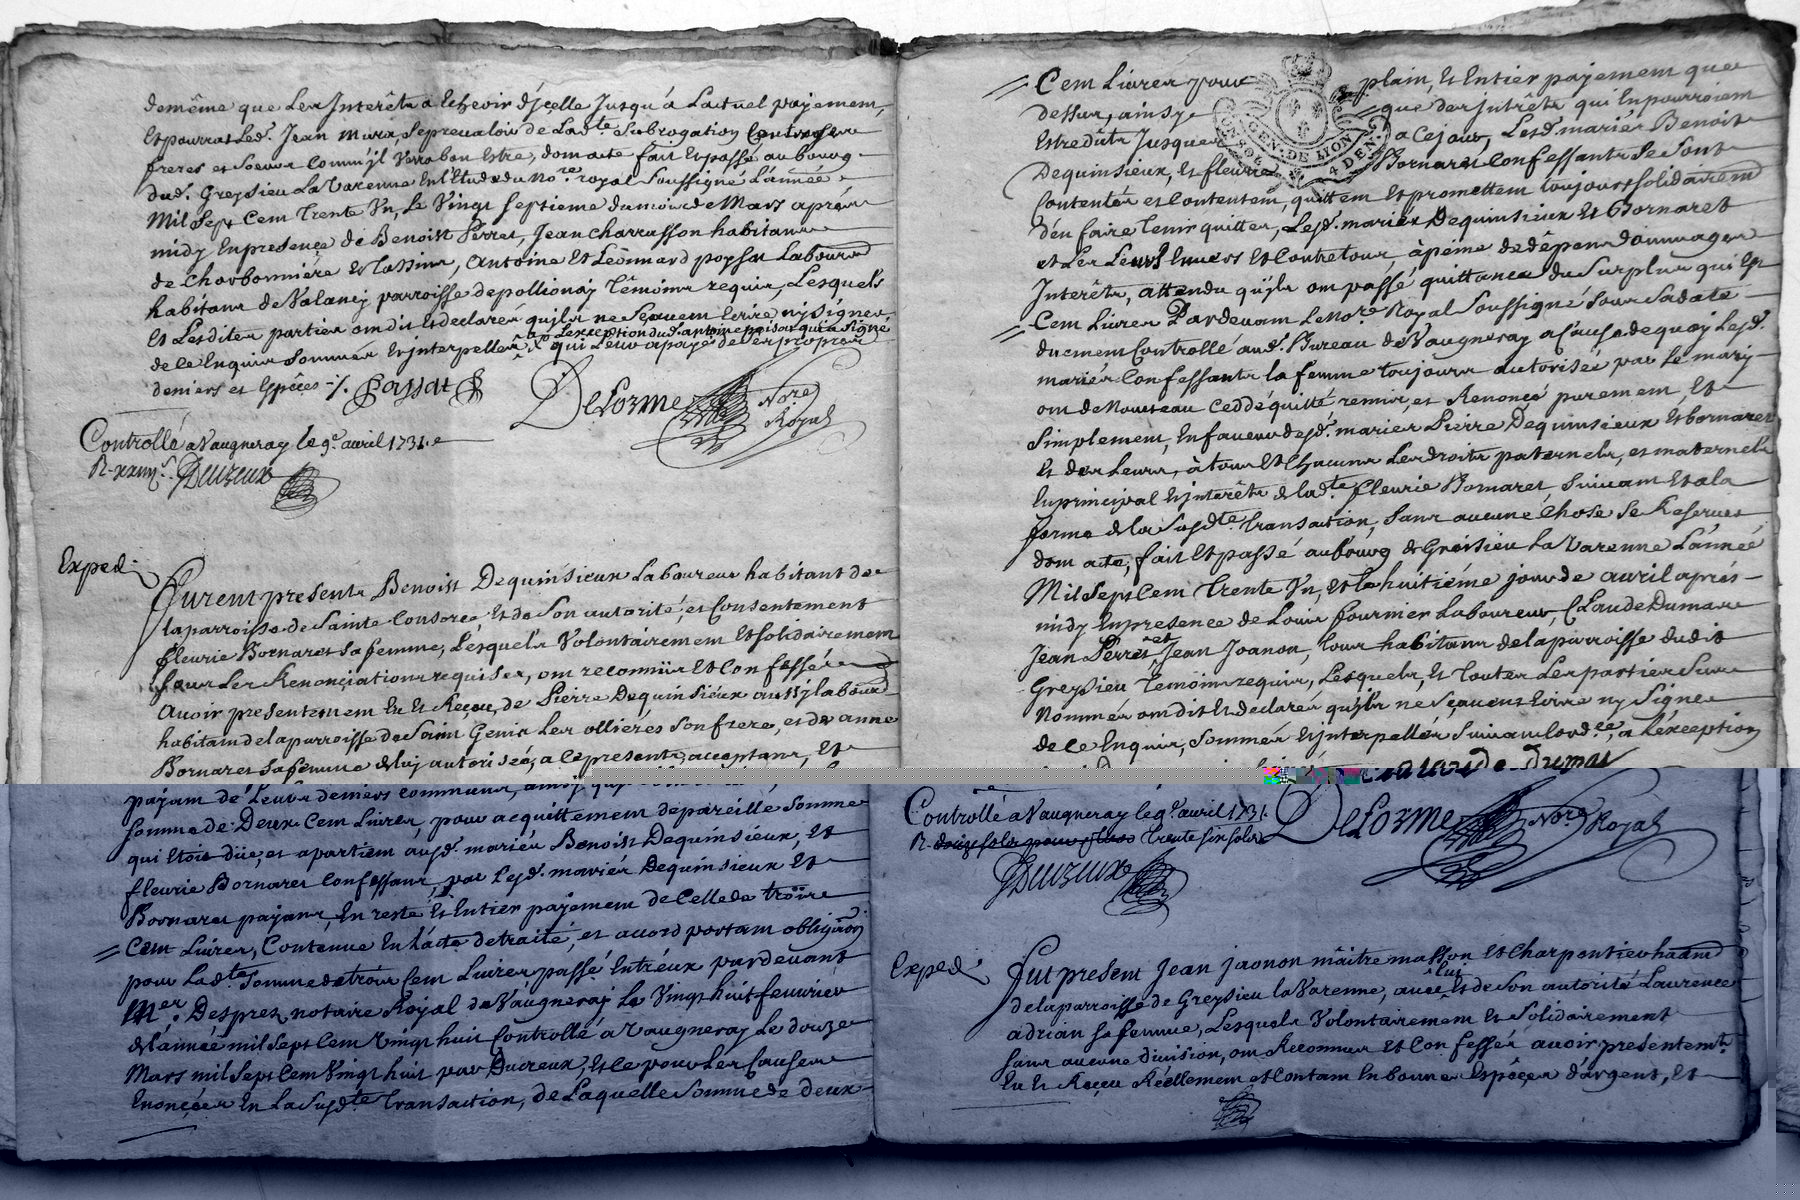 demême que les Interêts a Echeoir d'jcelle Jusqu'á Lactuel payement,
Et pourra Led. Jean mura, se prevaloir de Ladte Subrogation Contre ses
freres et soeurs Comm'jl verra bon Estre, dont acte fait Et passé au bourg
dud. Greysieu La Varenne En l'Etude du Nore. royal Soussigné L'année
Mil Sept Cent Trente Vn, Le Vingt septieme du mois de Mars aprés
midy En presence de Benoist Perret, Jean Charrasson habitants
de Charbonniére Et Tassins, Antoine Et Léonnard poysat Laboureurs
habitans de Valancy parroisse de pollionay Témoins requis, Lesquels
Et Lesdites parties ont dit Et declarer qu'jls ne Sçavent Ecrire ny Signer,
a Lexception dud. antoine poisat qui a Signé
de ce Enquis Sommés Et jnterpellés, qui Leur a payé de ses propres
deniers et Espêces ·/. Passat
Delorme Nore Royal
Controllé a Vaugneray le 9e avril 1731.
R. xxiiijs. Ducreux
Exped.
Furent presents Benoist Dequinsieux Laboureur habitant de
la parroisse de Sainte Consorce, Et de Son autorité, et Consentement
fleurie Bornaret sa femme, Lesquels Volontairement Et Solidairement
Sous Les Renonciations requises, ont reconnüs Et Confessés
Avoir presentement Eu Et Reçeu, de Pierre Dequinsieux aussy laboureur
habitant de la parroisse de Saint Genis Les ollières Son frere, et de anne
Bornaret sa femme de luy autorisée, a ce presents, acceptans, Et
payant de Leurs deniers communs,
somme de Deux Cent Livres, pour acquittement de pareille Somme
qui Etois düe, et apartient ausd. mariés Benoist Dequinsieux, Et
fleurie Bornaret Confessants, par Lesd. mariés Dequinsieux Et
Bornaret payans, En reste Et Entier payement de Celle de trois
Cent Livres, Contenue En l'acte de traité, et accord portant obligaon
pour Ladte. Somme de trois Cent Livres passé Entreux pardevant
Mer. Desprez notaire Royal de Vaugneray Le Vingt huit feuvrier
de l'année mil Sept Cent Vingt huit Controllé a Vaugneray Le douze
Mars mil Sept Cent Vingt huit par Ducreux, Et ce pour Les Causes
Enonçées En La Susdte Transaction, de Laquelle Somme de deux
Cent Livres pour plain, Et Entier payement que
dessus, ainsy que des jntérêts qui En pourroient
Estre dûts Jusques a Ce jour, Lesd. mariés Benoist
Dequinsieux, Et fleurie Bornaret Confessants Se Sont
GEN. DE LION
4 DEN.
Contentés et Contentent, quittent Et promettent toujours solidairement
d'en faire Tenir quittes, Lesd. mariés Dequinsieux Et Bornaret
et Les Leurs Envers Et Contre tous, à peine de dêpens dommages
Interêts, attendu qu'jls ont passé quittance du Surplus qui Est
Cent Livres Pardevant Le Nore Royal Soussigné Sous Sa date
duement Controllé aud. Bureau de Vaugneray a Cause de quoy Lesd.
mariés Confessants la femme toujours autorisée par le mary
ont de Nouveau Ceddé quitté remis, et Renoncé purement, Et
Simplement, En faveur desd. mariés Pierre Dequinsieux Et bornaret
Et des Leurs, à tous Et Chacuns Les droits paternels, et maternels
En principal Et jnterêts de ladte. fleurie Bornaret, Suivant Et a la
forme de la Susdte. transaction, Sans aucune Chose Se Reserver
dont acte, fait Et passé au bourg de Greisieu la Varenne L'année
Mil Sept Cent Trente Vn, Et le huitiéme jour de avril aprés
midy En presence de Louis fournier Laboureur, Claude Dumas
Jean Perret, et Jean Joanon, tous habitans de la parroisse dudit
Greysieu Temoins requis, Lesquels, Et toutes Les parties Susd.
Nommés ont dit Et declaré qu'jls ne Sçavent Ecrire ny Signer
de ce Enquis, Sommés Et jnterpellés Suivant Lordce, a l'éxception
claude Dumas
Controllé a Vaugneray le 9e. avril 1731.
R. trente six sols
Ducreux
Delorme Nore Royal
Exped.
Fut present Jean Jaonon mâitre masson Et Charpentier habitant
de la parroisse de Greysieu la Varenne, avec lui Et de Son autorité Laurence
adrian sa femme, Lesquels Volontairement Et Solidairement
Sans aucune division, ont Reconnus Et Confessés avoir presentemt.
Eu Et Reçeu Réellement et Contant En bonnes Espêces d'argent, Et